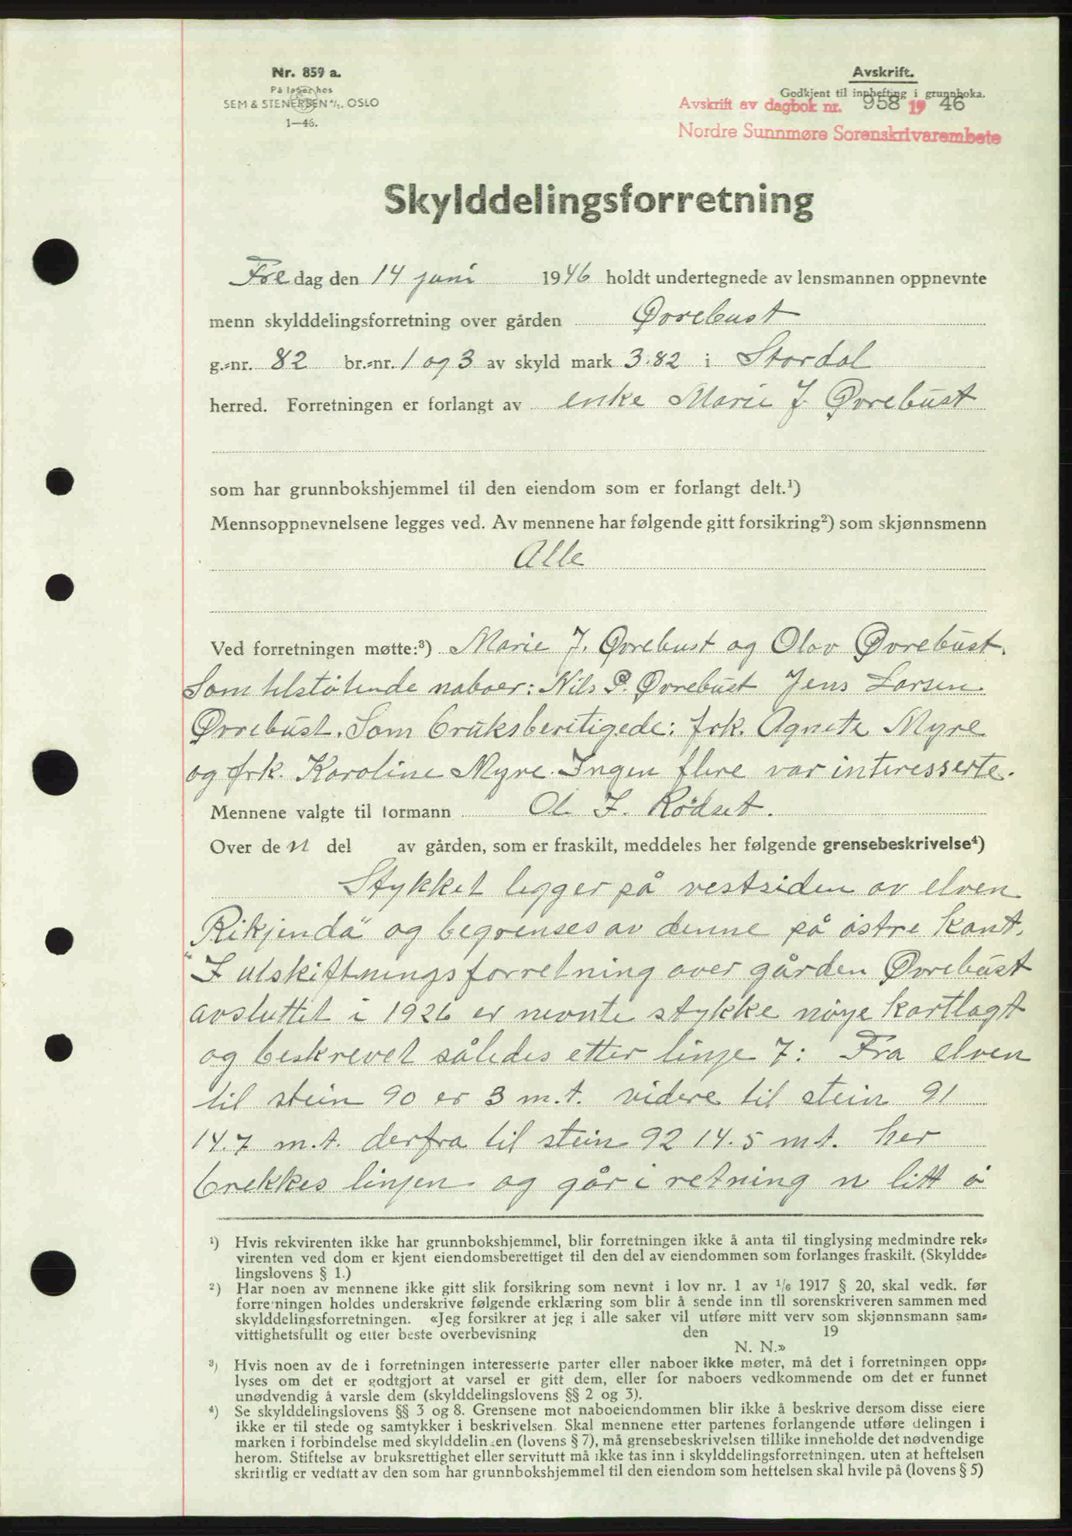 Nr. 859 a.
På lager hos
SEM & STENERSEN A/S. OSLO
1—46.
Avskrift.
Godkjent til innhefting i grunnboka.
Avskrift av dagbok nr. 958 19 46
Nordre Sunnmøre Sorenskrivarembete
Skylddelingsforretning
Fre dag den 14 juni 1946 holdt undertegnede av lensmannen oppnevnte
menn skylddelingsforretning over gården Øvrebust
g.-nr. 82 br.-nr. 1 og 3 av skyld mark 3.82 i Stordal
herred. Forretningen er forlangt av enke Marie J. Øvrebust
som har grunnbokshjemmel til den eiendom som er forlangt delt.¹)
Mennsoppnevnelsene legges ved. Av mennene har følgende gitt forsikring²) som skjønnsmenn
Alle
Ved forretningen møtte:³) Marie J. Øvrebust og Olov Øvrebust.
Som tilstøtende naboer: Nils P. Øvrebust Jens Larsen
Øvrebust. Som bruksberitigede: frk. Agnete Myre
og frk. Karoline Myre. Ingen flere var interesserte.
Mennene valgte til formann Ol. J. Rødset.
Over den del av gården, som er fraskilt, meddeles her følgende grensebeskrivelse⁴)
Stykket legger på vestsiden av elven
"Rikjenda" og begrenses av denne på østre kant.
"I utskiftningsforretning over gården Øvrebust
avsluttet i 1926 er nevnte stykke nøye kartlagt
og beskrevet således etter linje 7: Fra elven
til stein 90 er 3 m.t. videre til stein 91
14.7 m.t. derfra til stein 92 14.5 mt. her
brekkes linjen og går i retning n litt ø
¹) Hvis rekvirenten ikke har grunnbokshjemmel, blir forretningen ikke å anta til tinglysing medmindre rek-
virenten ved dom er kjent eiendomsberettiget til den del av eiendommen som forlanges fraskilt. (Skyldde-
lingslovens § 1.)
²) Har noen av mennene ikke gitt slik forsikring som nevnt i lov nr. 1 av 1/6 1917 § 20, skal vedk. før
forretningen holdes underskrive følgende erklæring som blir å sende inn til sorenskriveren sammen med
skylddelingsforretningen. «Jeg forsikrer at jeg i alle saker vil utføre mitt verv som skjønnsmann sam-
vittighetsfullt og etter beste overbevisning den 19
N. N.»
³) Hvis noen av de i forretningen interesserte parter eller naboer ikke møter, må det i forretningen opp-
lyses om det er godtgjort at varsel er gitt dem, eller for naboers vedkommende om det er funnet
unødvendig å varsle dem (skylddelingslovens §§ 2 og 3).
⁴) Se skylddelingslovens §§ 3 og 8. Grensene mot naboeiendommen blir ikke å beskrive dersom disse eiere
ikke er til stede og samtykker i beskrivelsen. Skal mennene etter partenes forlangende utføre delingen i
marken i forbindelse med skylddelingen (lovens § 7), må grensebeskrivelsen tillike inneholde det nødvendige
herom. Stiftelse av bruksrettighet eller servitutt må ikke tas inn i skylddelingsforretningen. uten at heftelsen
skriftlig er vedtatt av den som har grunnbokshjemmel til den eiendom som heftelsen skal hvile på (lovens § 5)